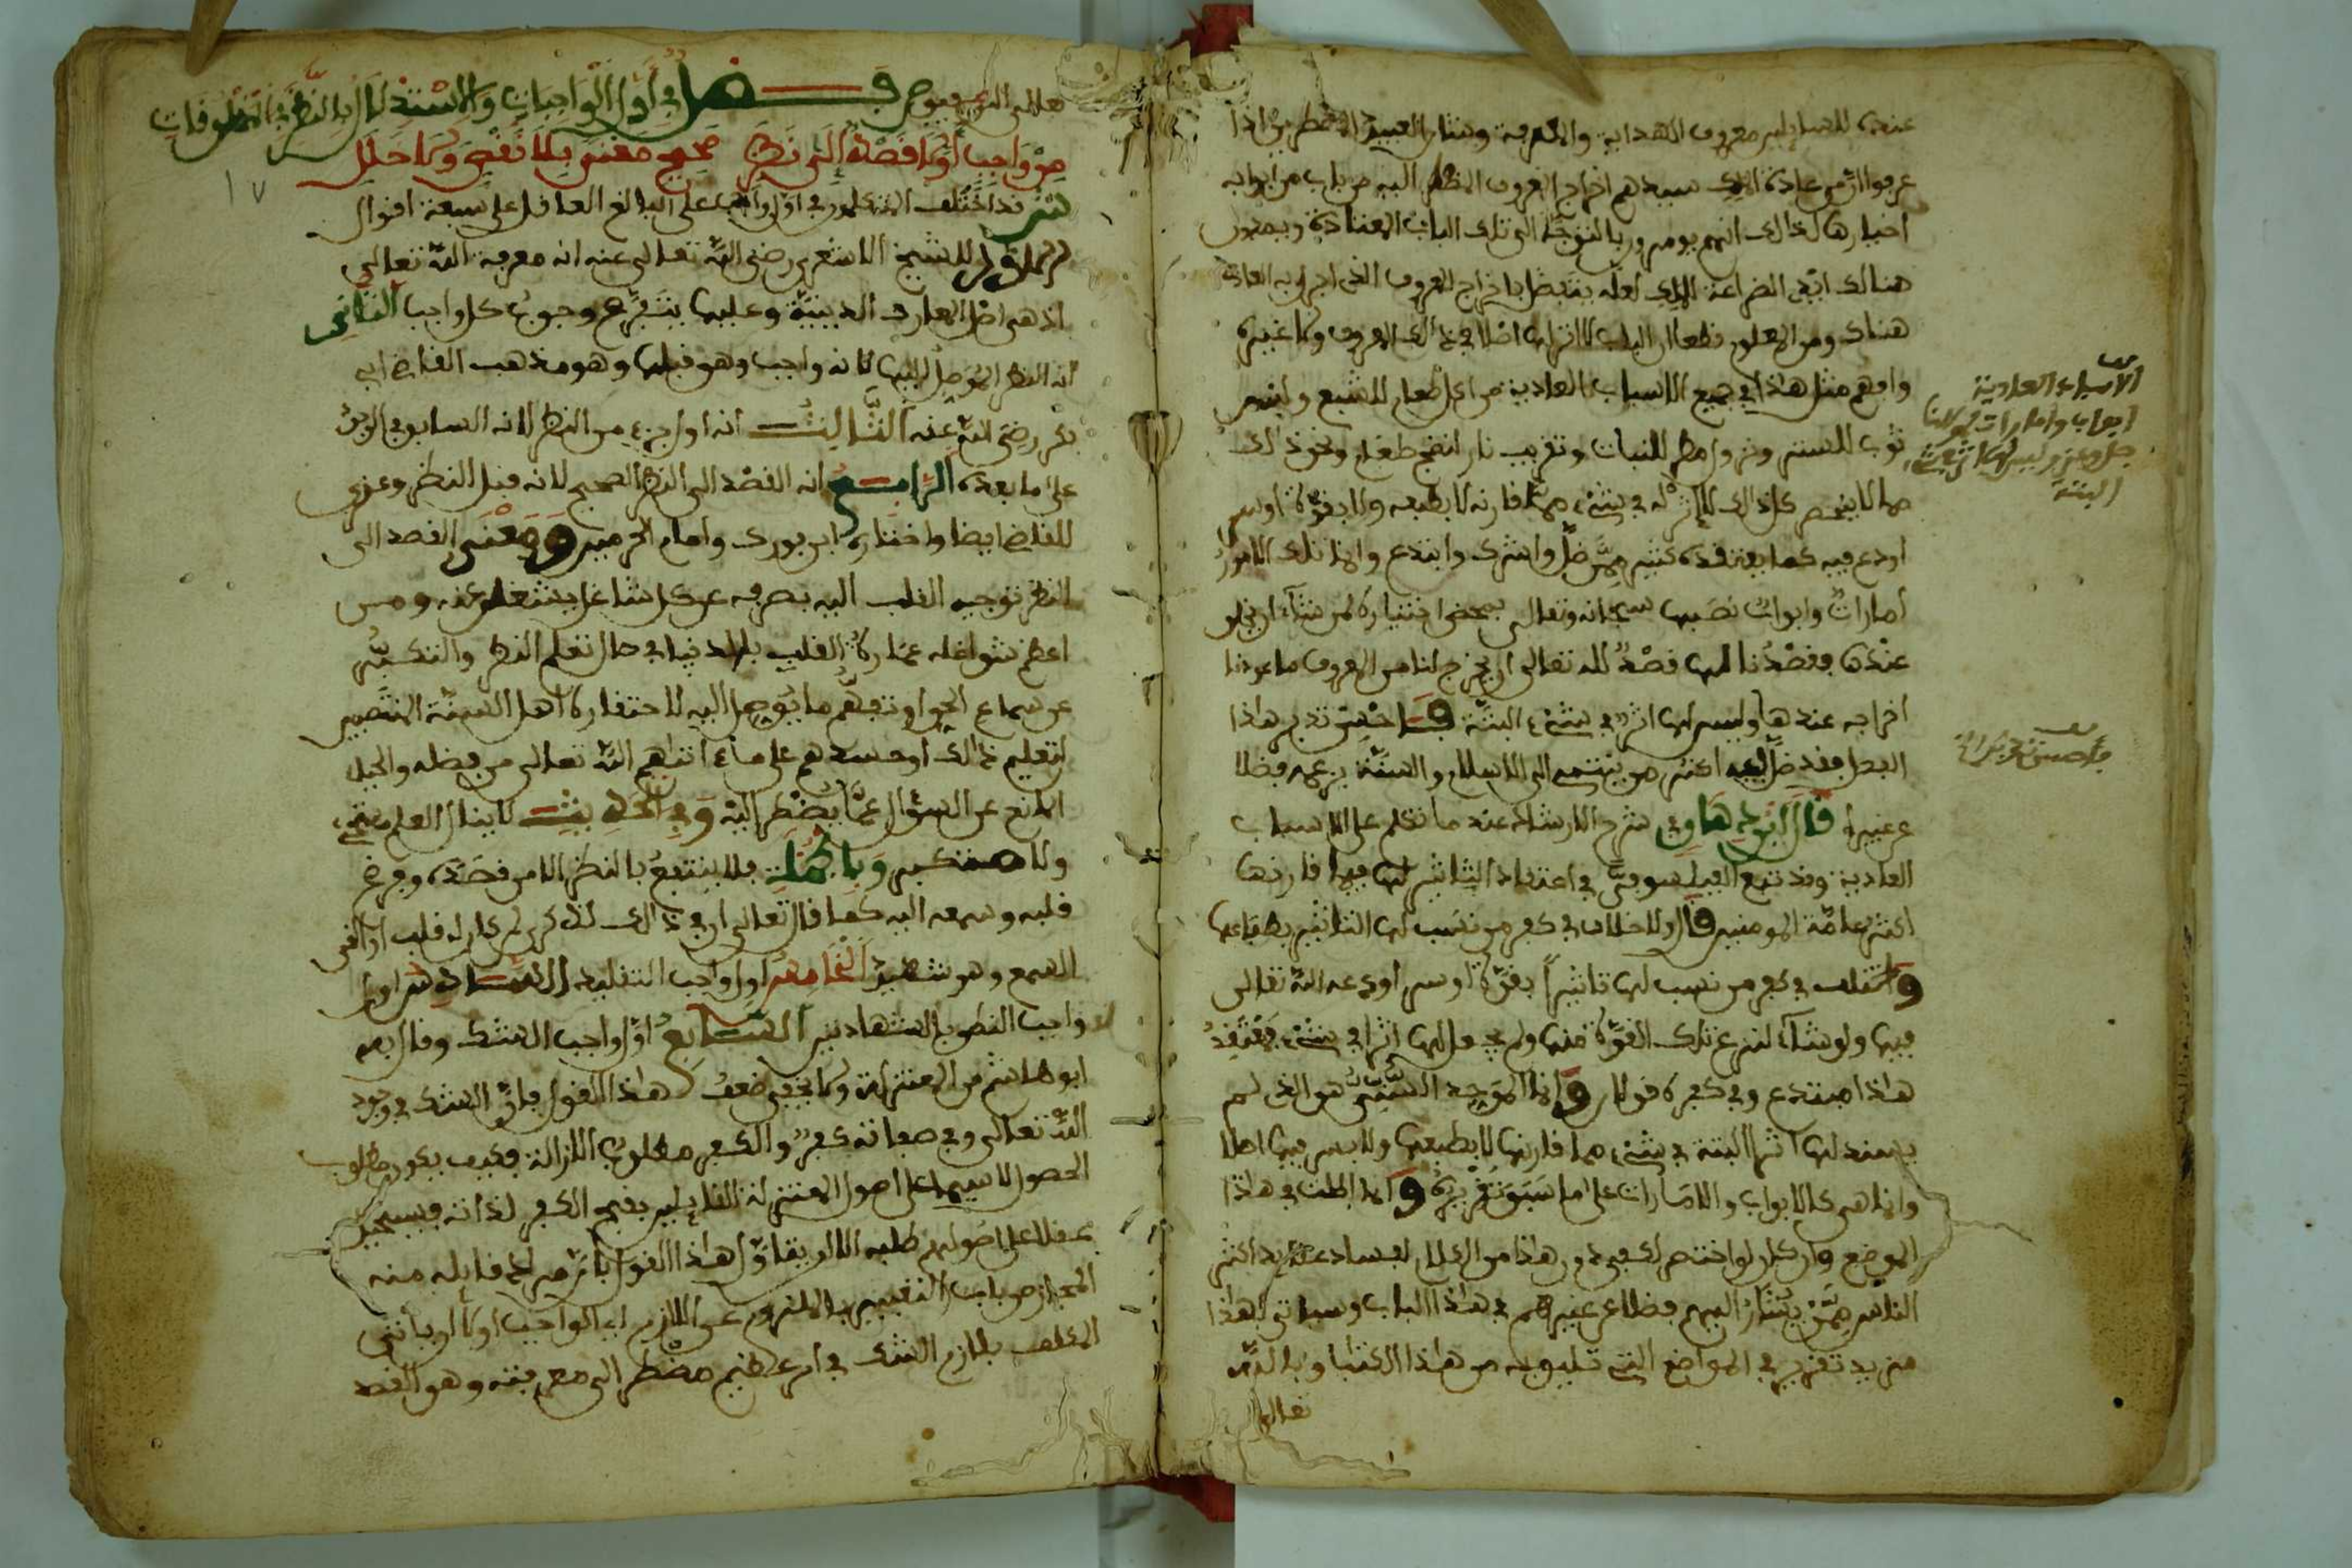 عنده للسايلين معروف الهداية والمعرفة وشان العبيد المضطرين اذا
عرفوا من عادة الملك سيدهم اخراج المعروف المظر اليه من باب من ابوابه
اختيارها لذالك انهم يومرون بالتوجه الى تلك الباب المعتادة ويمدون
هنالك ايدي الضراعة للملك لعله يتفضل باخراج المعروف الذي اجرى به العادة
هناك ومن المعلوم قطعا ان الباب لا اثر لها اصلا في ذالك المعروف ولا غيره
وافهم مثل هذا في جميع الاسباب العادية من اكل طعام للشبع ولبس
ثوب للستر ونزول مطر للنبات وتقريب نار لنضج طعام ونحو ذلك
مما لا ينحصر كل ذالك لا اثر له في شيء مما قارنه لا بطبعه ولا بقوة او سر
اودع فيه كما يعتقده كثير ممن ضل واشرك وابتدع وانما تلك الامور
امارات وابواب نصبها سبحانه وتعالى بمحض اختياره لمن شاء ان يخلو
عندها فقصدنا لها قصد لله تعالى ان يخرج لنا من المعروف ما عودنا
اخراجه عندها وليس لها اثر في شيء البتة فاحسن تدبر هاذا
الفصل فقد ضل فيه اكثر من ينتمي الى الاسلام والسنة بزعمه فضلا
عن غيرها قال ابن دهاق في شرح الارشاد عندما تكلم على الاسباب
العادية وقد تبع الفيلسوفي في اعتقاد التاثير لها فيما قارنها
اكثر عامة المومنين قال ولا خلاف في كفر من نسب لها التاثير بطباعها
واختلف في كفر من نسب لها تاثيرا بقوة او سر اودعه الله تعالى
فيها ولو شاء لنزع تلك القوة منها ولم يجعل لها اثرا في شيء فمعتقد
هاذا مبتدع وفي كفره قولان وانما الموحد السني هو الذي لم
يسند لها اثرا البتة في شيء مما قارنها لا بطبعها ولا بسر فيها اصلا
وانما هي كالابواب والامارات على ما سبق تقريره وانما اطلت في هاذا
الموضع وان كان لو اختصر لكفى دون هاذا من الكلام لفساد عقائد اكثر
الناس ممن يشار اليهم فضلا عن غيرهم في هاذا الباب وسياتي لهاذا
مزيد تقرير في المواضع التي تليق به من هاذا الكتاب وبالله
تعالى
الاسباب العادية
ابواب وامارات لمولانا
جل وعز وليس لها اثر في شيء
البتة
تعالى التوفيق ص فصل في اول الواجبات والاستدلال بالنظر في المخلوقات
من واجب اولا قصد الى نظر صحيح معنى بلا نقص ولا خلل
١٧
ش قد اختلف المتكلمون في اول واجب على البالغ العاقل على سبعة اقوال
الاول للشيخ الاشعري رضي الله تعالى عنه انه معرفة الله تعالى
اذ هي اصل المعارف الدينية وعليها يتفرع وجوب كل واجب الثاني
انه النظر الموصل اليها لانه واجب وهو قبلها وهو مذهب القاضي ابي
بكر رضي الله عنه الثالث انه اول جزء من النظر لانه السابق في الوجود
على ما بعده الرابع انه القصد الى النظر الصحيح لانه قبل النظر وعزي
للقاضي ايضا واختاره ابن فورك وامام الحرمين ومعنى القصد الى
النظر توجيه القلب اليه بصرفه عن كل شاغل يشغله عنه ومن
اعظم شواغله عمارة القلب بالدنيا في حال تعلم النظر والتكبر
عن سماع الحق وتفهم ما يوصل اليه لاحتقاره اهل السنة المنتصبين
لتعليم ذالك او حسدهم على ما ءاتاهم الله تعالى من فضله والحياء
المانع عن السؤال عما يضطر اليه وفي الحديث لا ينال العلم مستحي
ولا مستكبر وبالجملة فلا ينتفع بالنظر الا من قصده وفرغ
قلبه وسمعه اليه كما قال تعالى ان في ذالك لذكرى لمن كان له قلب او القى
السمع وهو شهيد الخامس اول واجب التقليد السادس اول
واجب النطق بالشهادتين السابع اول واجب الشك وقال به
ابو هاشم من المعتزلة ولا يخفى ضعف هاذا القول فان الشك في وجود
الله تعالى وفي صفاته كفر والكفر مطلوب الازالة فكيف يكون مطلوب
الحصول لا سيما على اصول المعتزلة القايلين بقبح الكفر لذاته فيستحيل
عقلا على اصولهم طلبه الا ان يقال هاذا القول بانه من قايله منه
المجاز من باب التعبير بالملزوم عن اللازم اي الواجب اولا ان ياتي
المكلف بلازم الشك في امر عظيم مضطر الى معرفته وهو القصد